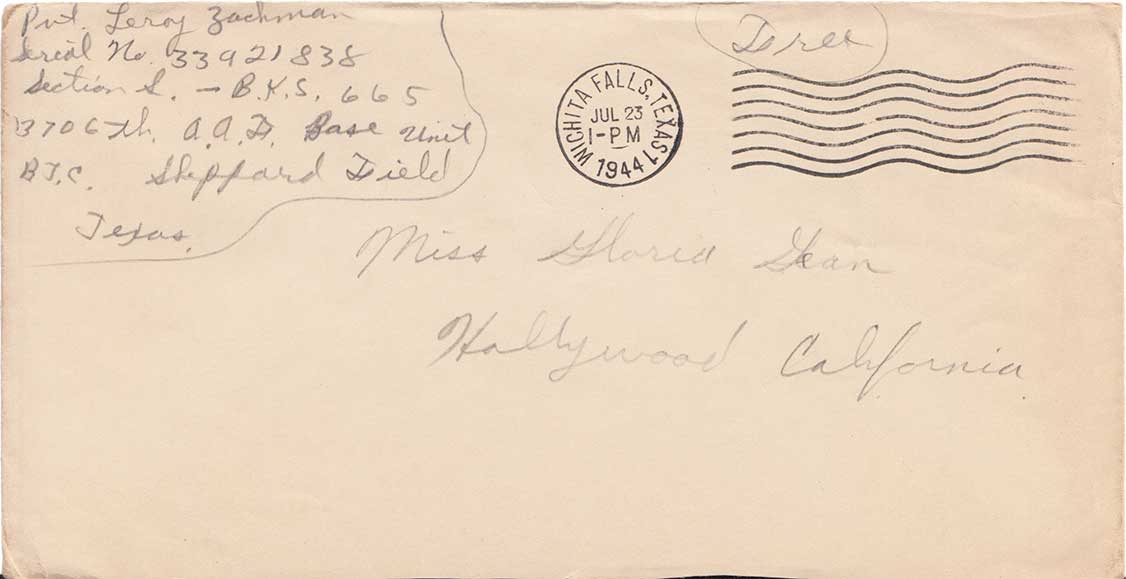 Pvt. Leroy Zachman
Serial No. 33921838
Section S. – BKS. 665
3706th. A.A.F. Base Unit
BTC. Sheppard Field
Texas.
Free
WICHITA FALLS, TEXAS 1
JUL 23
1-PM
1944
Miss Gloria Jean
Hollywood California